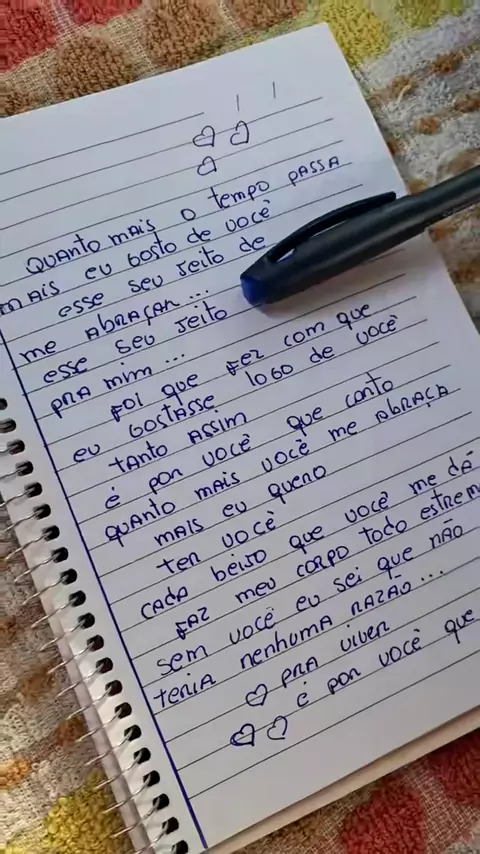 QUANTO MAIS O TEMPO PASSA
MAIS EU GOSTO DE VOCÊ
ESSE SEU JEITO DE
ME ABRAÇAR...
ESSE SEU JEITO
PRA MIM...
FOI QUE FEZ COM QUE
EU GOSTASSE LOGO DE VOCÊ
TANTO ASSIM
É POR VOCÊ QUE CANTO
QUANTO MAIS VOCÊ ME ABRAÇA
MAIS EU QUERO
TER VOCÊ
CADA BEIJO QUE VOCÊ ME DÁ
FAZ MEU CORPO TODO ESTREM
SEM VOCÊ EU SEI QUE NÃO
TERIA NENHUMA RAZÃO...
PRA VIVER
É POR VOCÊ QUE